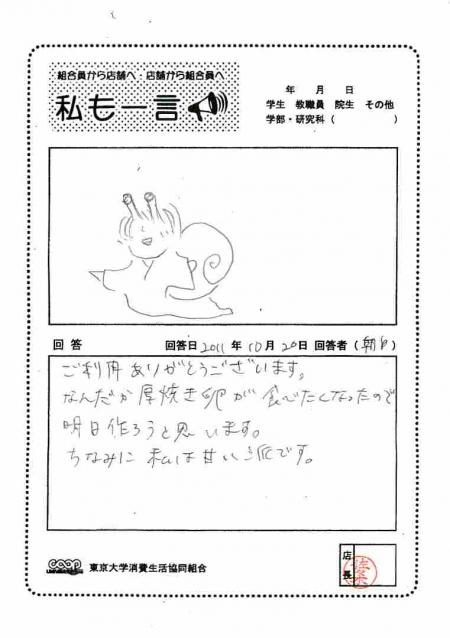 組合員から店舗へ 店舗から組合員へ
私も一言
年 月 日
学生 教職員 院生 その他
学部・研究科 ( )
回答 回答日 2011 年 10 月 20 日 回答者 (朝日)
ご利用ありがとうございます。
なんだか厚焼き卵が食べたくなったので
明日作ろうと思います。
ちなみに私は甘い派です。
coop 東京大学消費生活協同組合
店長